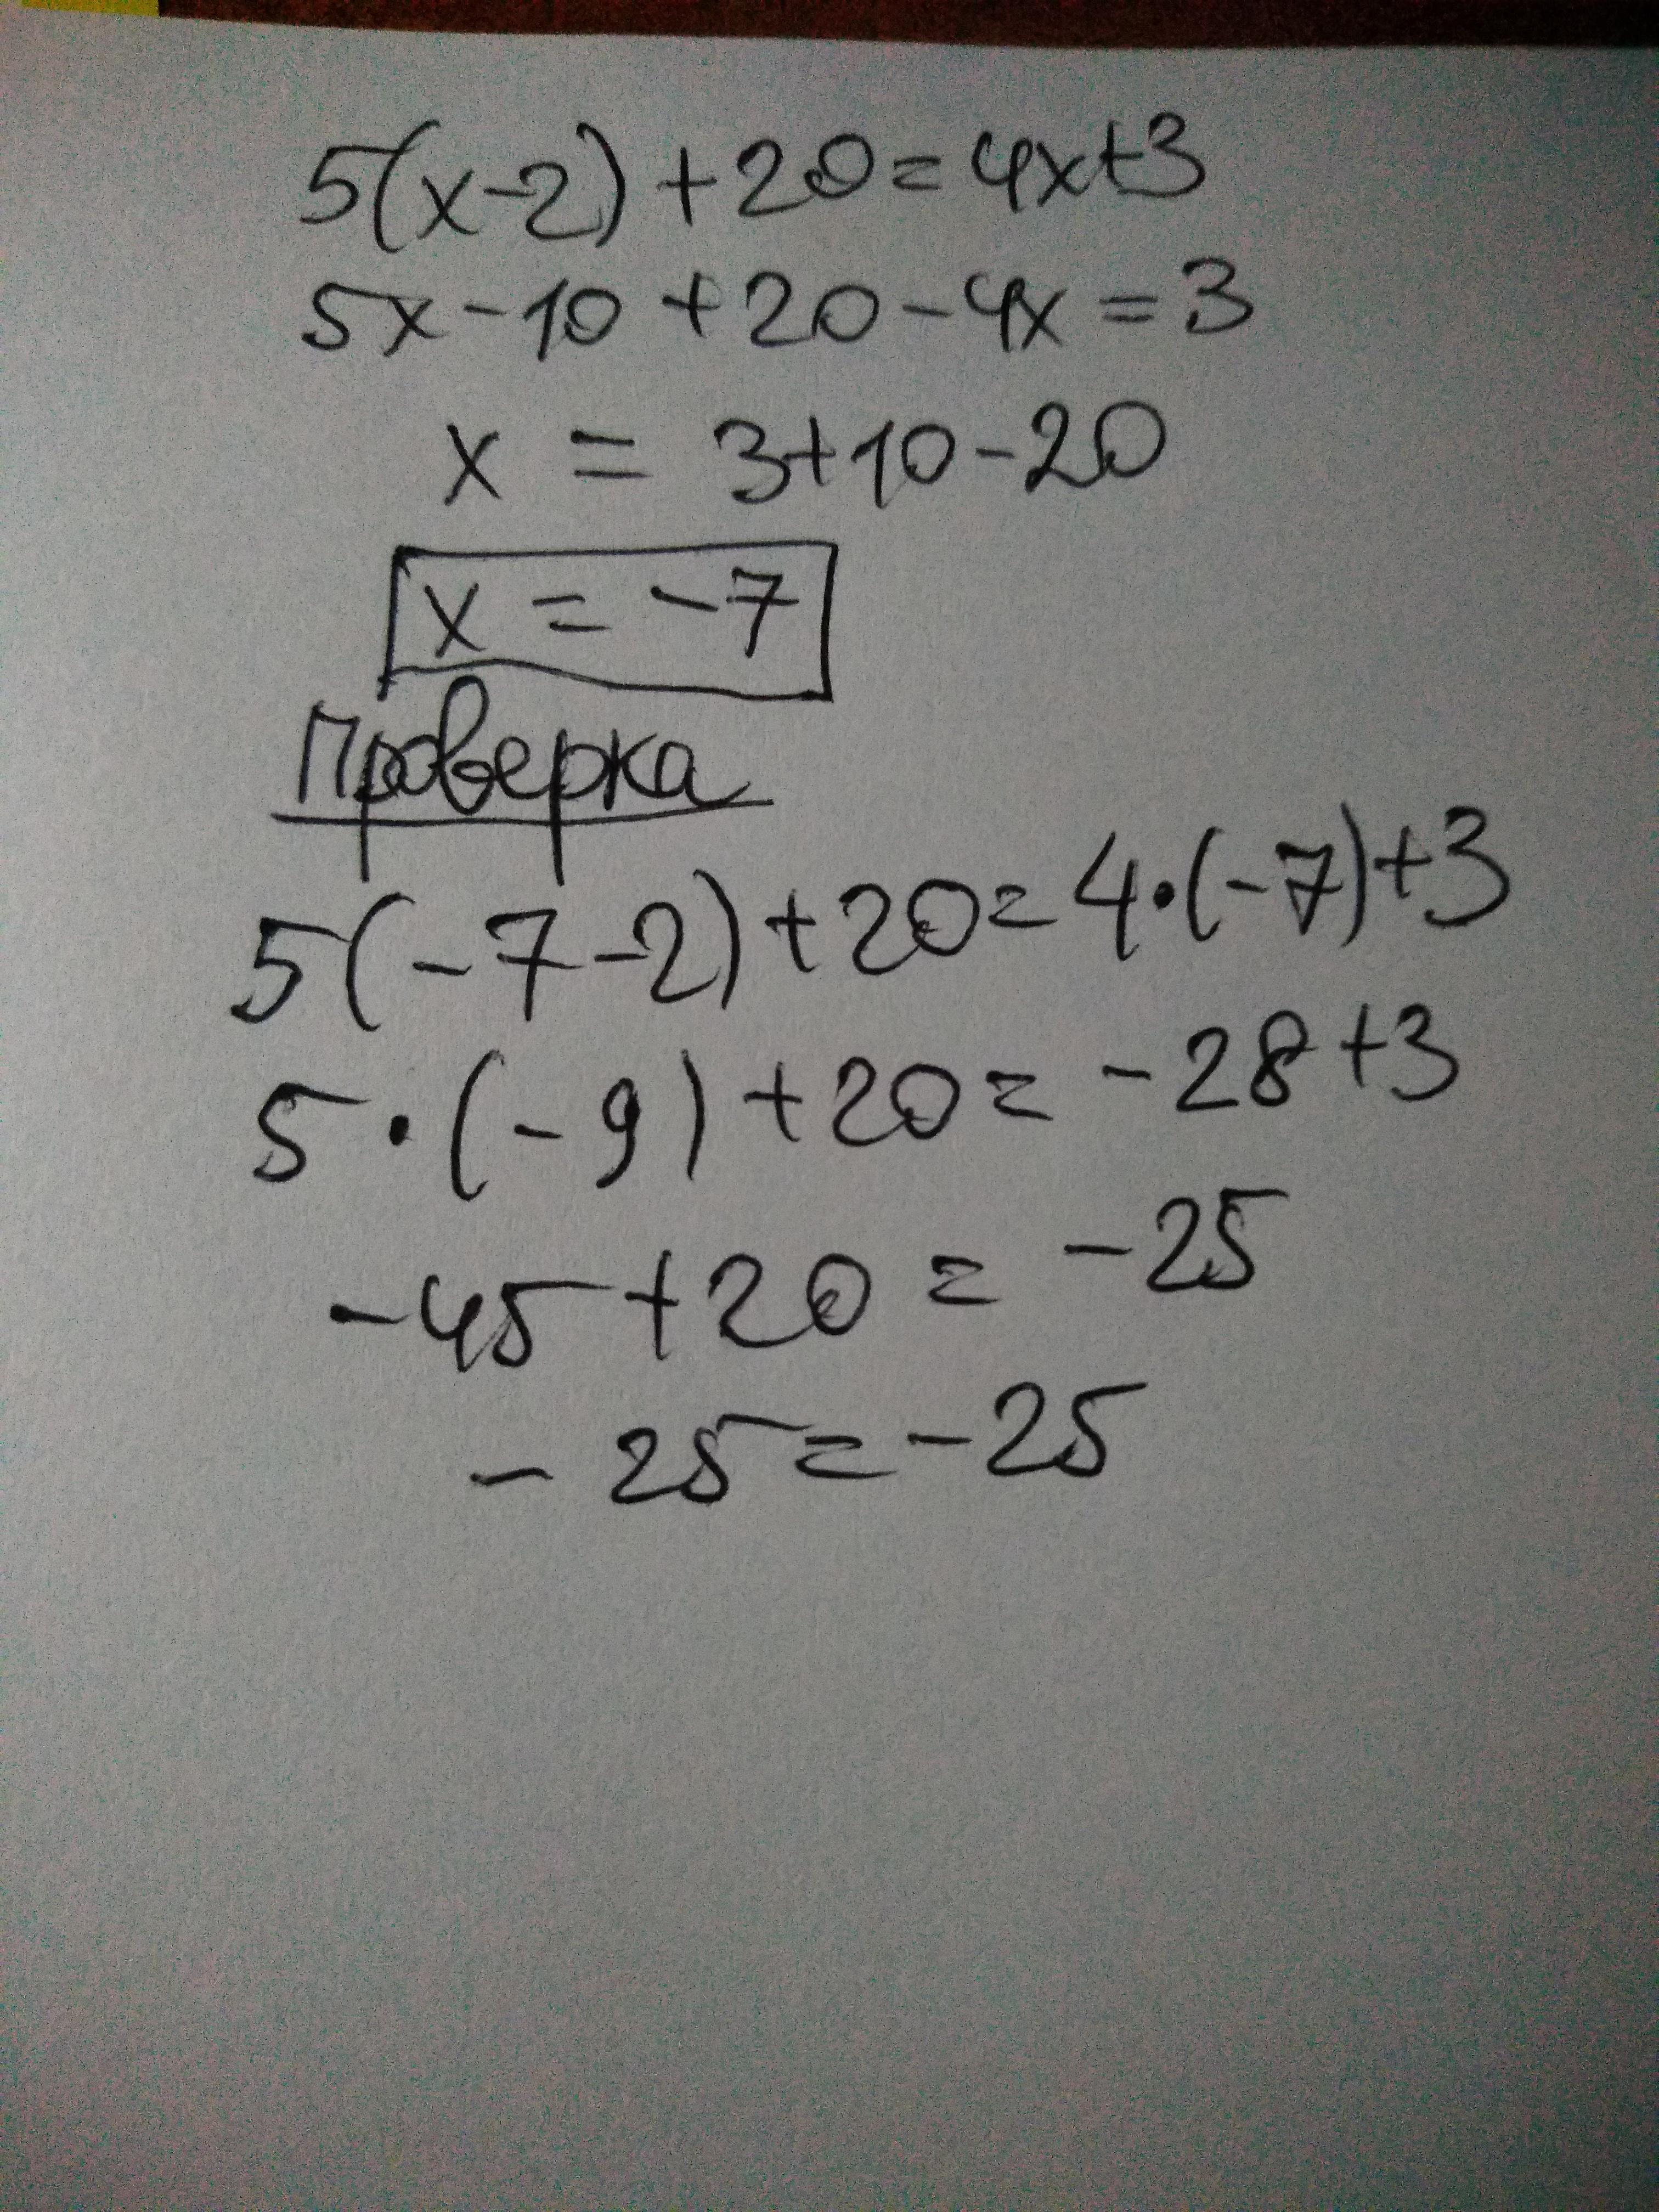 5(x-2)+20=4x+3
5x-10+20-4x=3
x = 3+10-20
x = -7
Проверка
5(-7-2)+20=4·(-7)+3
5·(-9)+20=-28+3
-45+20=-25
-25=-25